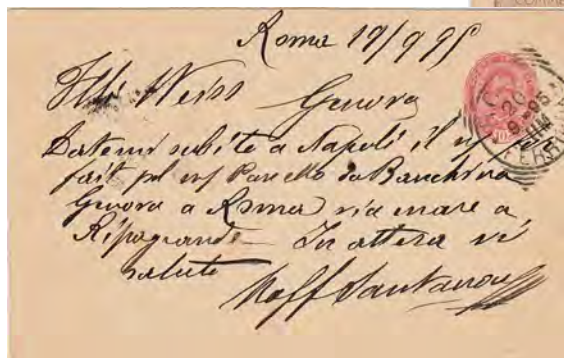 Roma 19/9 95
Flli Weiss Genova
Datemi subito a Napoli il
fait pel Panello da Banchina
Genova a Roma via mare a
Ripagrande In attesa vi
saluto
20
9-95